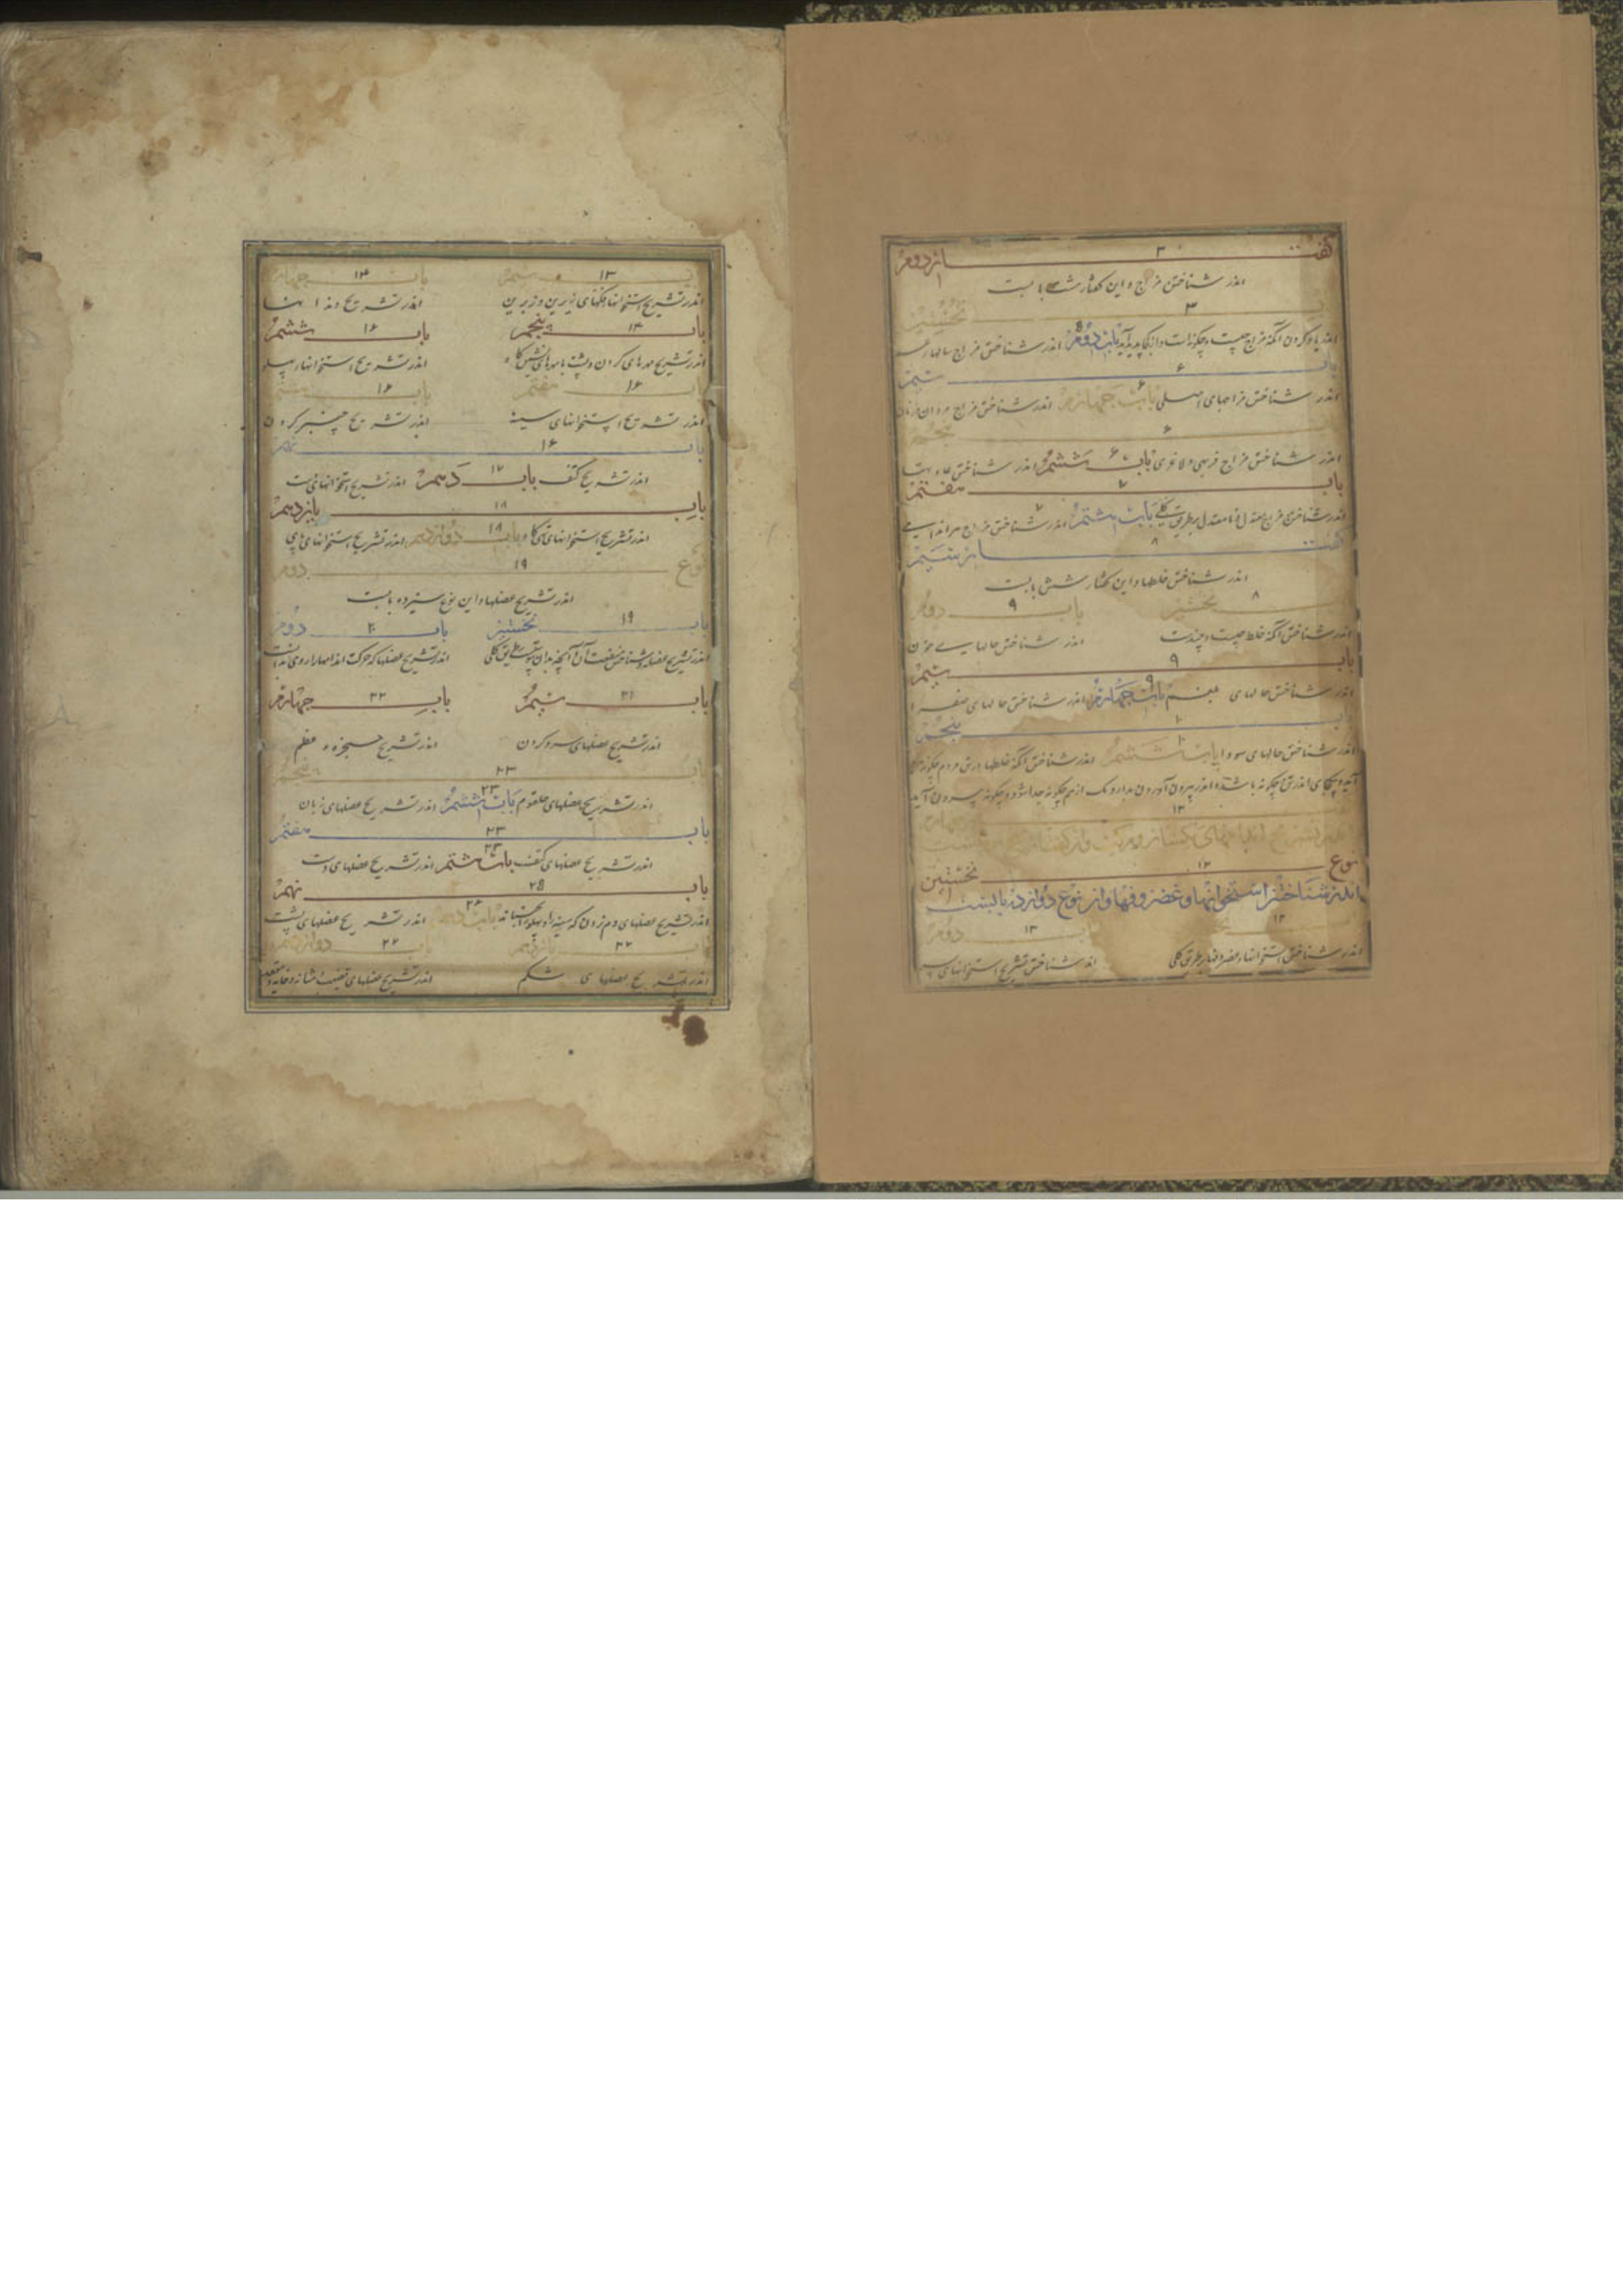 گفتار دوم ۳
اندر شناختن مزاج و این گفتار هشت بابست
نخستین ۳
اندر یاد کردن آنکه مزاج چیست و چگونه است و از کجا پدید آید باب دوم اندر شناختن مزاج سالهاء
باب سیم ۶
اندر شناختن مزاجهای اصلی باب چهارم ۶ اندر شناختن مزاج مردان و زنان
پنجم ۶
اندر شناختن مزاج فربهی و لاغری باب ششم ۶ اندر شناختن عادتها
باب هفتم ۷
اندر شناختن مزاج معتدل و نا معتدل بر طریق کلی باب هشتم ۷ اندر شناختن مزاج هر اندامی
گفتار سیم ۸
اندر شناختن خلطها و این گفتار شش بابست
نخستین ۸ باب دوم ۹
اندر شناختن آنکه خلط چیست و چندست اندر شناختن حالهای خون
باب سیم ۹
اندر شناختن حالهای بلغم باب چهارم ۹ اندر شناختن حالهای صفرا
باب پنجم ۱۰
اندر شناختن حالهای سودا باب ششم ۱۰ اندر شناختن آنکه خلطها در تن مردم چگونه
۱۲
نوع نخستین ۱۲
اندر شناختن استخوانها و غضروفها و این نوع دوازده بابست
۱۲ باب دوم ۱۳
اندر شناختن استخوانها و غضروفها بر طریق کلی اندر شناختن تشریح استخوانهای سر
باب سیم ۱۳ باب چهارم ۱۴
اندر تشریح استخوانها فکهای زیرین و زبرین اندر تشریح دندانها
باب پنجم ۱۴ باب ششم ۱۶
اندر تشریح مهره‌های گردن و پشت با مهره‌های نشستگاه اندر تشریح استخوانهاء پهلو
باب هفتم ۱۶ باب هشتم ۱۶
اندر تشریح استخوانهای سینه اندر تشریح چنبر گردن
باب نهم ۱۶
اندر تشریح کتف باب دهم ۱۷ اندر تشریح استخوانهای دست
باب یازدهم ۱۸
اندر تشریح استخوانهای تهیگاه باب دوازدهم ۱۸ اندر تشریح استخوانهای پای
نوع دوم ۱۹
اندر تشریح عضلها و این نوع سیزده بابست
باب نخستین ۱۹ باب دوم ۲۰
اندر تشریح عضله و شناختن منفعت آن و آنچه بدان پیوسته بطریق کلی اندر تشریح عضلها که حرکت اندامهاء روی بدانست
باب سیم ۲۱ باب چهارم ۲۲
اندر تشریح عضلهای سر و گردن اندر تشریح حنجره و عظم
باب پنجم ۲۳
اندر تشریح عضلهای حلقوم باب ششم ۲۳ اندر تشریح عضلهای زبان
باب هفتم ۲۳
اندر تشریح عضلهای کتف باب هشتم ۲۴ اندر تشریح عضلهای دست
باب نهم ۲۵
اندر تشریح عضلهای دم زدن که سینه را و پهلو را بجنباند باب دهم ۲۶ اندر تشریح عضلهای پشت
باب یازدهم ۲۷ باب دوازدهم ۲۷
اندر تشریح عضلهای شکم اندر تشریح عضلهای قضیب و مثانه و خایه و مقعد